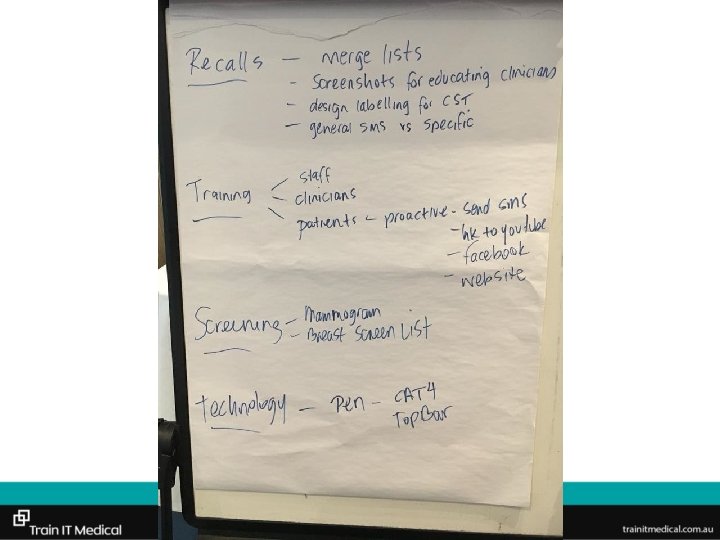 Recalls - merge lists
- Screenshots for educating clinicians
- design labelling for CST.
- general sms vs specific
Training - staff
- clinicians
- patients - proactive - send sms
- link to youtube
- facebook
- website
Screening - Mammogram
- Breast Screen List
Technology - Pen - CAT4
TopBar
Train IT Medical
trainitmedical.com.au